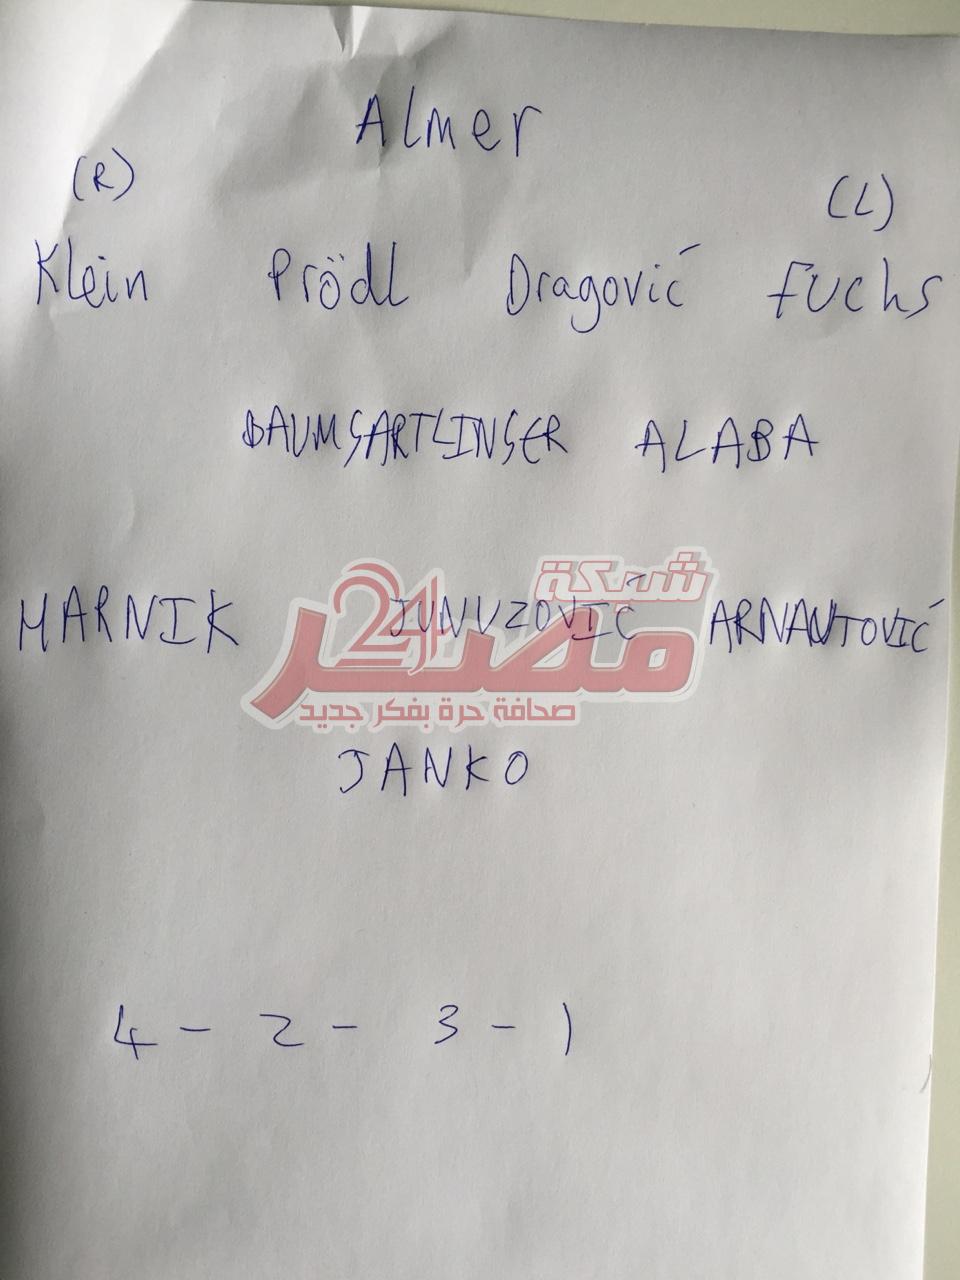 Almer
(R) (L)
Klein Prödl Dragović Fuchs
BAUMGARTLINGER ALABA
HARNIK JUNUZOVIĆ ARNAUTOVIĆ
شبكة
مصر 24
صحافة حرة بفكر جديد
JANKO
4 - 2 - 3 - 1